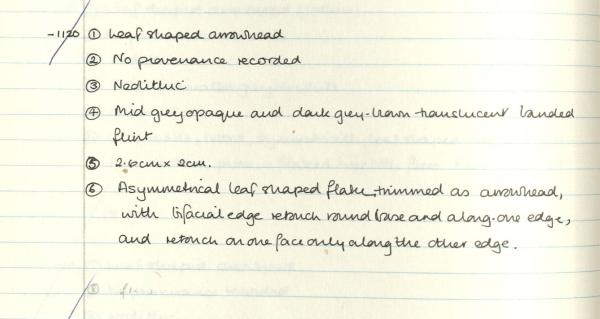 -1120 ① Leaf shaped arrowhead
② No provenance recorded
③ Neolithic
④ Mid grey opaque and dark grey-brown translucent banded
flint
⑤ 2.6cm x 2cm.
⑥ Asymmetrical leaf shaped flake, trimmed as arrowhead,
with bifacial edge retouch round base and along one edge,
and retouch on one face only along the other edge.